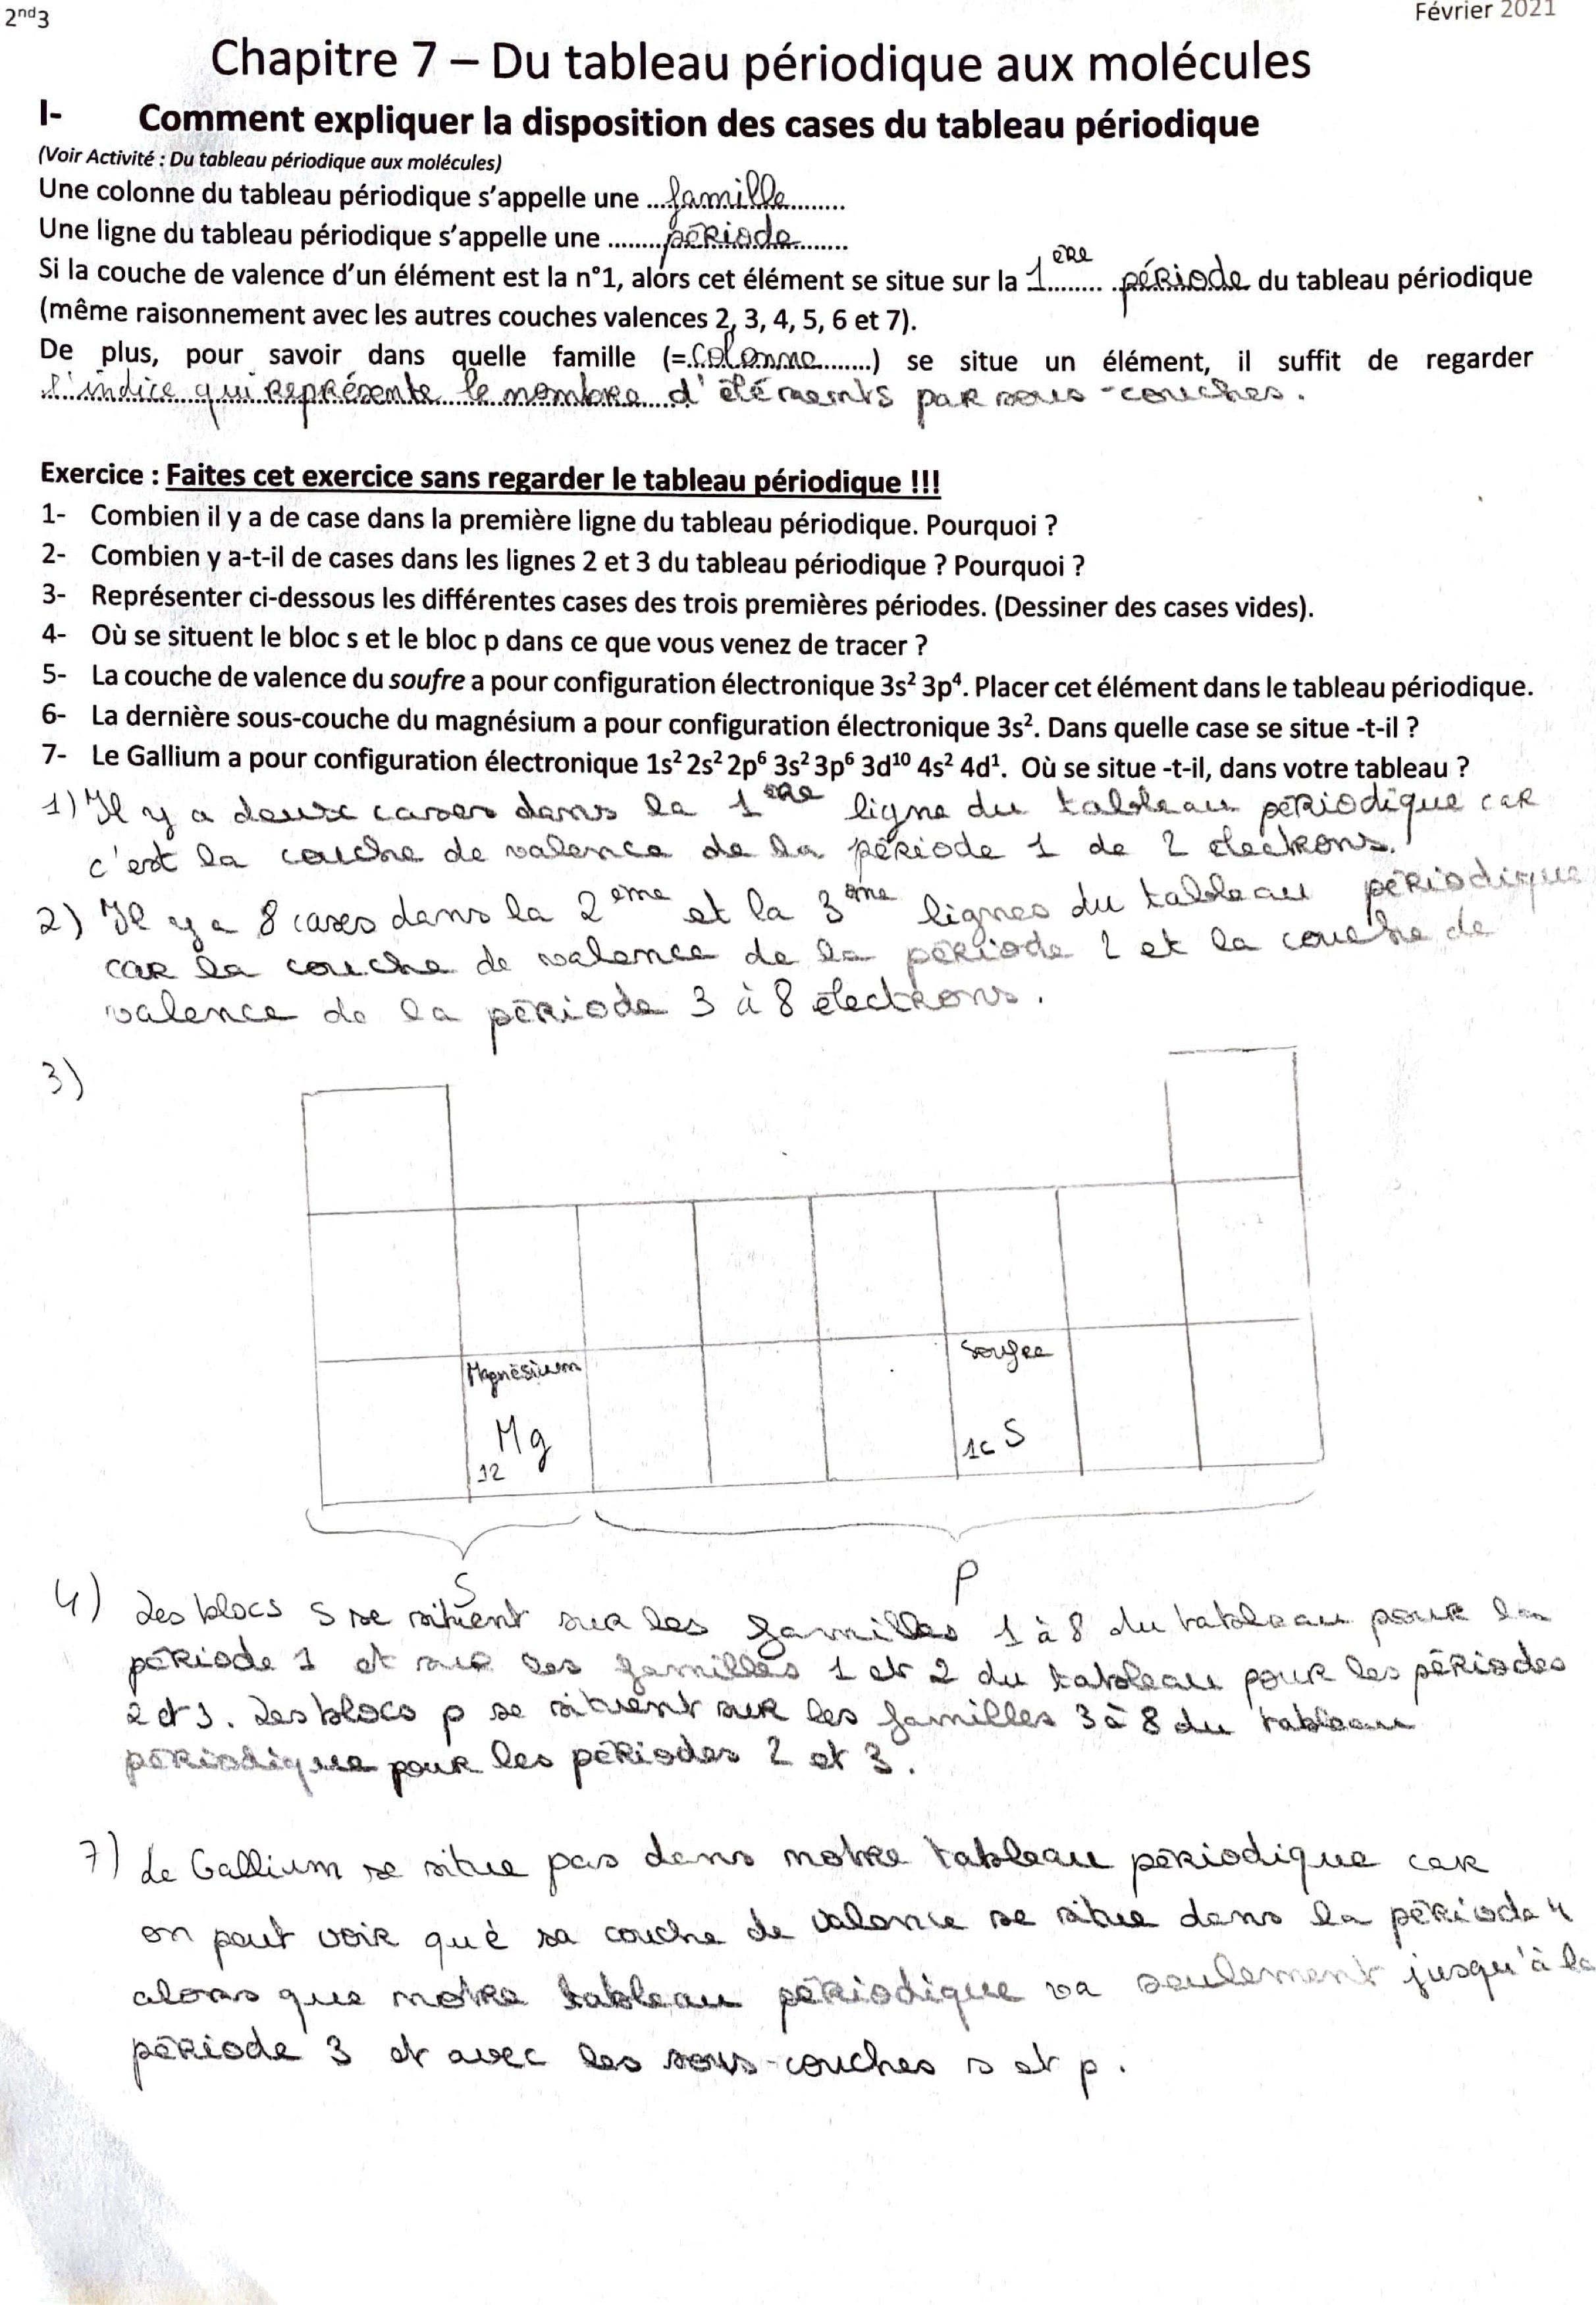 2nd3
Février 2021
Chapitre 7 – Du tableau périodique aux molécules
I- Comment expliquer la disposition des cases du tableau périodique
(Voir Activité : Du tableau périodique aux molécules)
Une colonne du tableau périodique s'appelle une ....famille.........
Une ligne du tableau périodique s'appelle une ........période.......
Si la couche de valence d'un élément est la n°1, alors cet élément se situe sur la 1ère........ .période. du tableau périodique
(même raisonnement avec les autres couches valences 2, 3, 4, 5, 6 et 7).
De plus, pour savoir dans quelle famille (=.colonne........) se situe un élément, il suffit de regarder
l'indice qui représente le nombre d'éléments par sous-couches.
Exercice : Faites cet exercice sans regarder le tableau périodique !!!
1- Combien il y a de case dans la première ligne du tableau périodique. Pourquoi ?
2- Combien y a-t-il de cases dans les lignes 2 et 3 du tableau périodique ? Pourquoi ?
3- Représenter ci-dessous les différentes cases des trois premières périodes. (Dessiner des cases vides).
4- Où se situent le bloc s et le bloc p dans ce que vous venez de tracer ?
5- La couche de valence du soufre a pour configuration électronique 3s² 3p⁴. Placer cet élément dans le tableau périodique.
6- La dernière sous-couche du magnésium a pour configuration électronique 3s². Dans quelle case se situe -t-il ?
7- Le Gallium a pour configuration électronique 1s² 2s² 2p⁶ 3s² 3p⁶ 3d¹⁰ 4s² 4d¹. Où se situe -t-il, dans votre tableau ?
1) Il y a deux cases dans la 1ère ligne du tableau périodique car
c'est la couche de valence de la période 1 de 2 électrons.
2) Il y a 8 cases dans la 2ème et la 3ème lignes du tableau périodique
car la couche de valence de la période 2 et la couche de
valence de la période 3 à 8 électrons.
3)
Magnésium
Soufre
Mg
12
16 S
S
P
4) Les blocs s se situent sur les familles 1 à 8 du tableau pour la
période 1 et sur les familles 1 et 2 du tableau pour les périodes
2 et 3. Les blocs p se situent sur les familles 3 à 8 du tableau
périodique pour les périodes 2 et 3.
7) Le Gallium se situe pas dans notre tableau périodique car
on peut voir que sa couche de valence se situe dans la période 4
alors que notre tableau périodique va seulement jusqu'à la
période 3 et avec les sous-couches s et p.